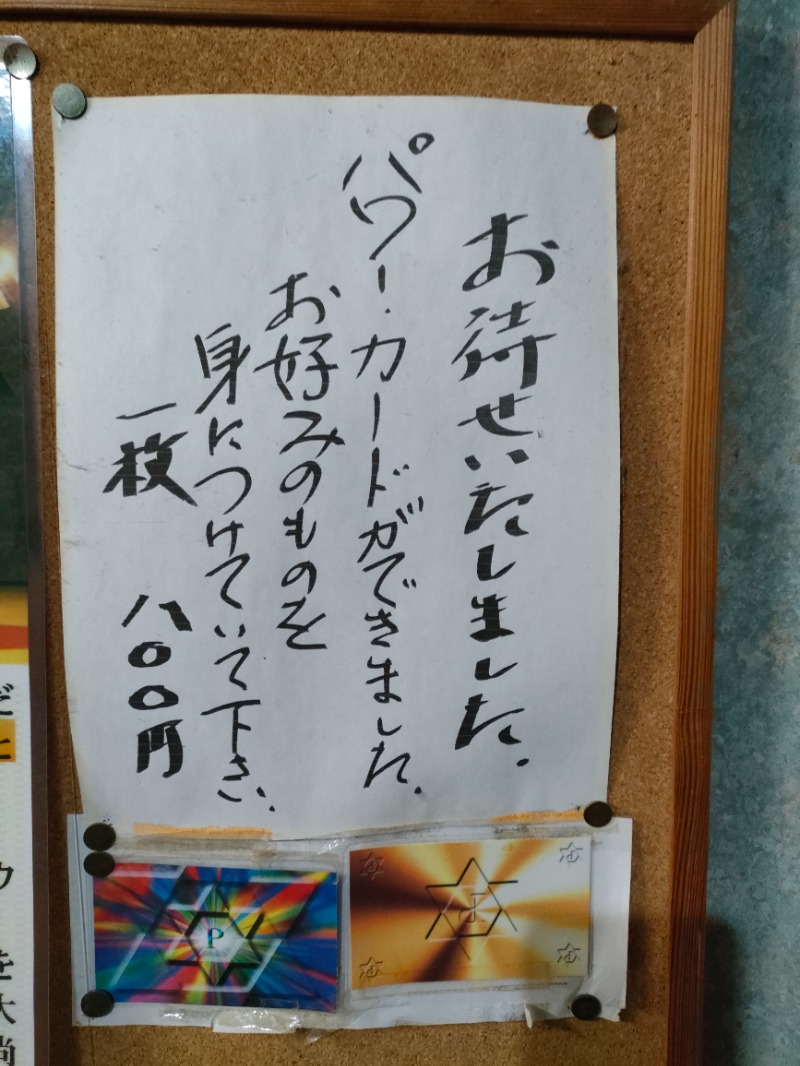 お待せいたしました.
パワー.カードができました.
お好みのものを
身につけていて下さい.
一枚 八〇〇円
P